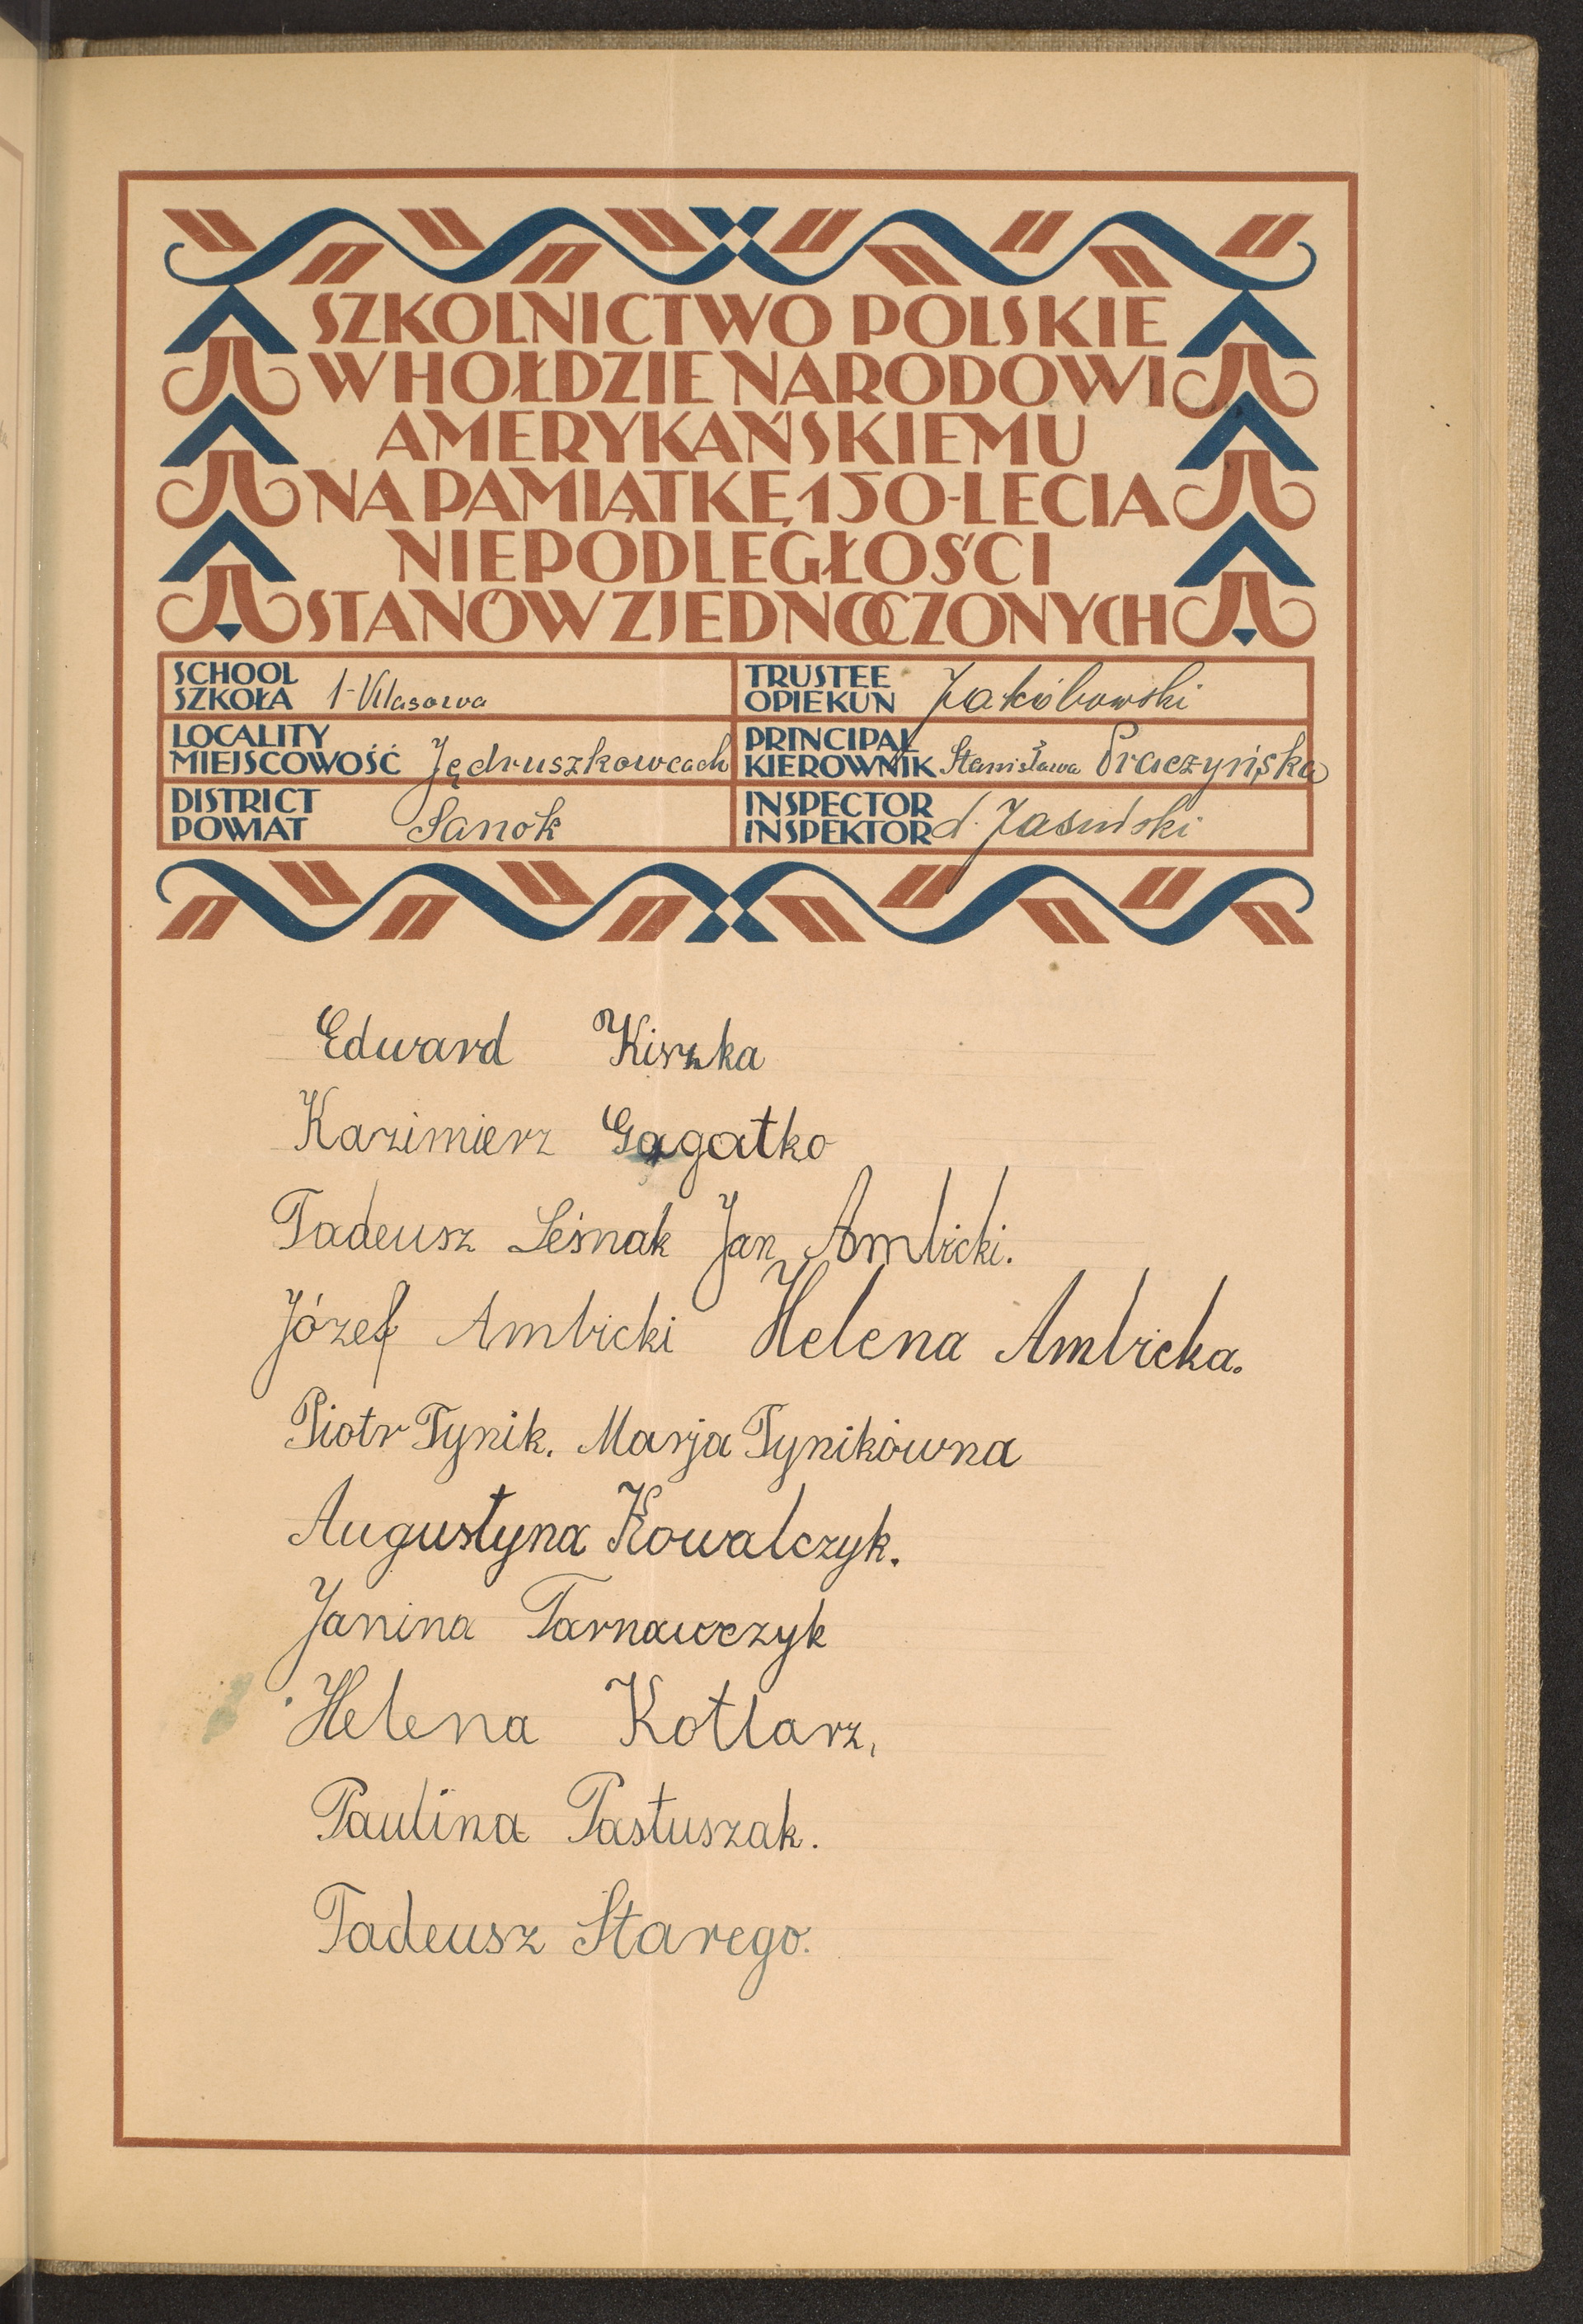 SZKOLNICTWO POLSKIE
W HOŁDZIE NARODOWI
AMERYKAŃSKIEMU
NA PAMIĄTKĘ 150-LECIA
NIEPODLEGŁOŚCI
STANÓW ZJEDNOCZONYCH
SCHOOL
SZKOŁA 1-Klasowa
LOCALITY
MIEJSCOWOŚĆ Jędruszkowcach
DISTRICT
POWIAT Sanok
TRUSTEE
OPIEKUN Jakóbowski
PRINCIPAL
KIEROWNIK Stanisława Praczyńska
INSPECTOR
INSPEKTOR Jasiński
Edward Kiszka
Kazimierz Gagatko
Tadeusz Leśnak Jan Ambicki.
Józef Ambicki Helena Ambicka.
Piotr Tynik. Marja Tynikówna
Augustyna Kowalczyk.
Janina Tarnawczyk
Helena Kotlarz,
Paulina Pastuszak.
Tadeusz Starego.